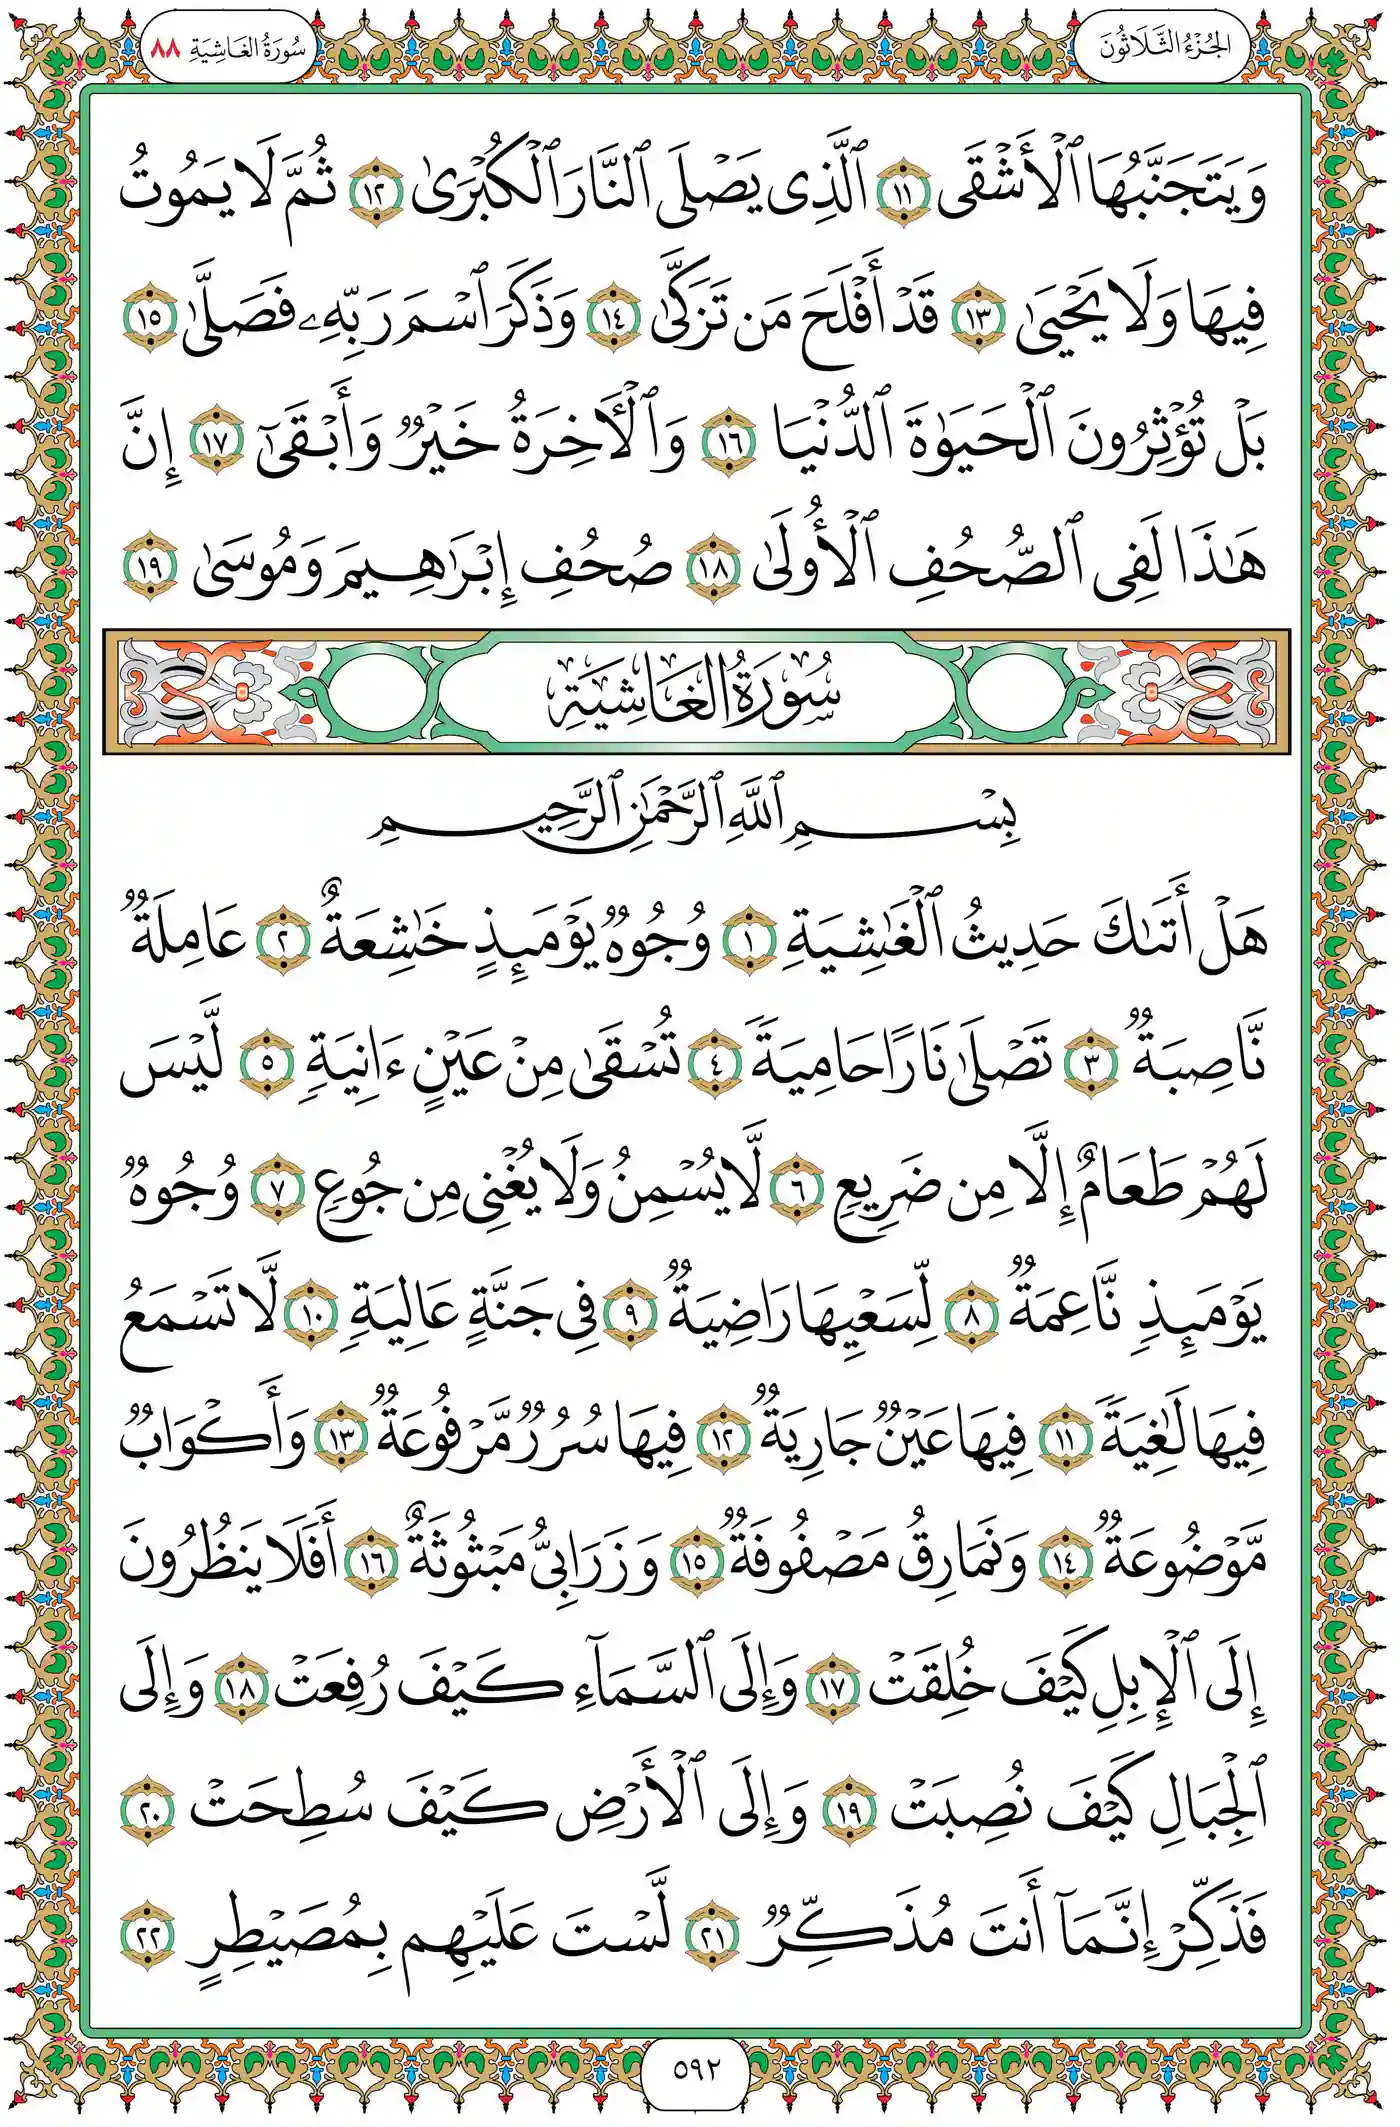 الجُزْءُ الثَّلَاثُونَ
سُورَةُ الغَاشِيَةِ ٨٨
وَيَتَجَنَّبُهَا ٱلْأَشْقَى ١١ ٱلَّذِى يَصْلَى ٱلنَّارَ ٱلْكُبْرَىٰ ١٢ ثُمَّ لَا يَمُوتُ
فِيهَا وَلَا يَحْيَىٰ ١٣ قَدْ أَفْلَحَ مَن تَزَكَّىٰ ١٤ وَذَكَرَ ٱسْمَ رَبِّهِۦ فَصَلَّىٰ ١٥
بَلْ تُؤْثِرُونَ ٱلْحَيَوٰةَ ٱلدُّنْيَا ١٦ وَٱلْءَاخِرَةُ خَيْرٌ وَأَبْقَىٰٓ ١٧ إِنَّ
هَٰذَا لَفِى ٱلصُّحُفِ ٱلْأُولَىٰ ١٨ صُحُفِ إِبْرَٰهِيمَ وَمُوسَىٰ ١٩
سُورَةُ الغَاشِيَةِ
بِسْمِ ٱللَّهِ ٱلرَّحْمَٰنِ ٱلرَّحِيمِ
هَلْ أَتَىٰكَ حَدِيثُ ٱلْغَٰشِيَةِ ١ وُجُوهٌ يَوْمَئِذٍ خَٰشِعَةٌ ٢ عَامِلَةٌ
نَّاصِبَةٌ ٣ تَصْلَىٰ نَارًا حَامِيَةً ٤ تُسْقَىٰ مِنْ عَيْنٍ ءَانِيَةٍ ٥ لَّيْسَ
لَهُمْ طَعَامٌ إِلَّا مِن ضَرِيعٍ ٦ لَّا يُسْمِنُ وَلَا يُغْنِى مِن جُوعٍ ٧ وُجُوهٌ
يَوْمَئِذٍ نَّاعِمَةٌ ٨ لِّسَعْيِهَا رَاضِيَةٌ ٩ فِى جَنَّةٍ عَالِيَةٍ ١٠ لَّا تَسْمَعُ
فِيهَا لَٰغِيَةً ١١ فِيهَا عَيْنٌ جَارِيَةٌ ١٢ فِيهَا سُرُرٌ مَّرْفُوعَةٌ ١٣ وَأَكْوَابٌ
مَّوْضُوعَةٌ ١٤ وَنَمَارِقُ مَصْفُوفَةٌ ١٥ وَزَرَابِىُّ مَبْثُوثَةٌ ١٦ أَفَلَا يَنظُرُونَ
إِلَى ٱلْإِبِلِ كَيْفَ خُلِقَتْ ١٧ وَإِلَى ٱلسَّمَآءِ كَيْفَ رُفِعَتْ ١٨ وَإِلَى
ٱلْجِبَالِ كَيْفَ نُصِبَتْ ١٩ وَإِلَى ٱلْأَرْضِ كَيْفَ سُطِحَتْ ٢٠
فَذَكِّرْ إِنَّمَآ أَنتَ مُذَكِّرٌ ٢١ لَّسْتَ عَلَيْهِم بِمُصَيْطِرٍ ٢٢
٥٩٢